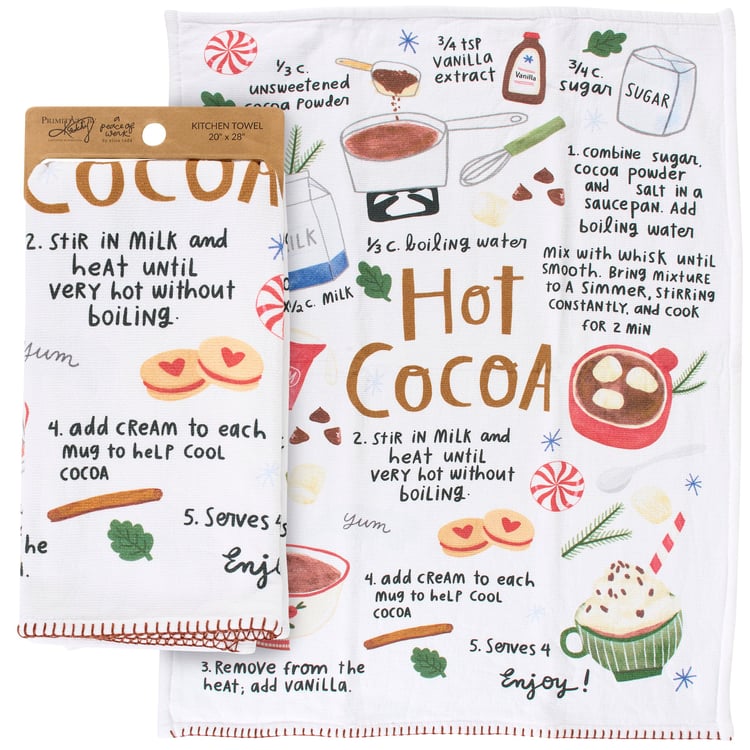 PRIMITIVES BY
Kathy
a
peace of
work
KITCHEN TOWEL
20" x 28"
COCOA
2. Stir in Milk and
heat until
very hot without
boiling.
yum
4. add cream to each
mug to help cool
cocoa
5. Serves 4
he
Enj
1/3 c.
unsweetened
cocoa powder
3/4 tsp
vanilla
extract
Vanilla
3/4 c.
sugar
SUGAR
1. Combine sugar,
cocoa powder
and salt in a
saucepan. Add
boiling water
Mix with whisk until
smooth. Bring mixture
to a simmer, stirring
constantly, and cook
for 2 min
ILK
1/2 c. Milk
1/3 c. boiling water
Hot
COCOA
2. Stir in Milk and
heat until
very hot without
boiling.
yum
4. add cream to each
mug to help cool
cocoa
5. Serves 4
Enjoy!
3. Remove from the
heat; add vanilla.